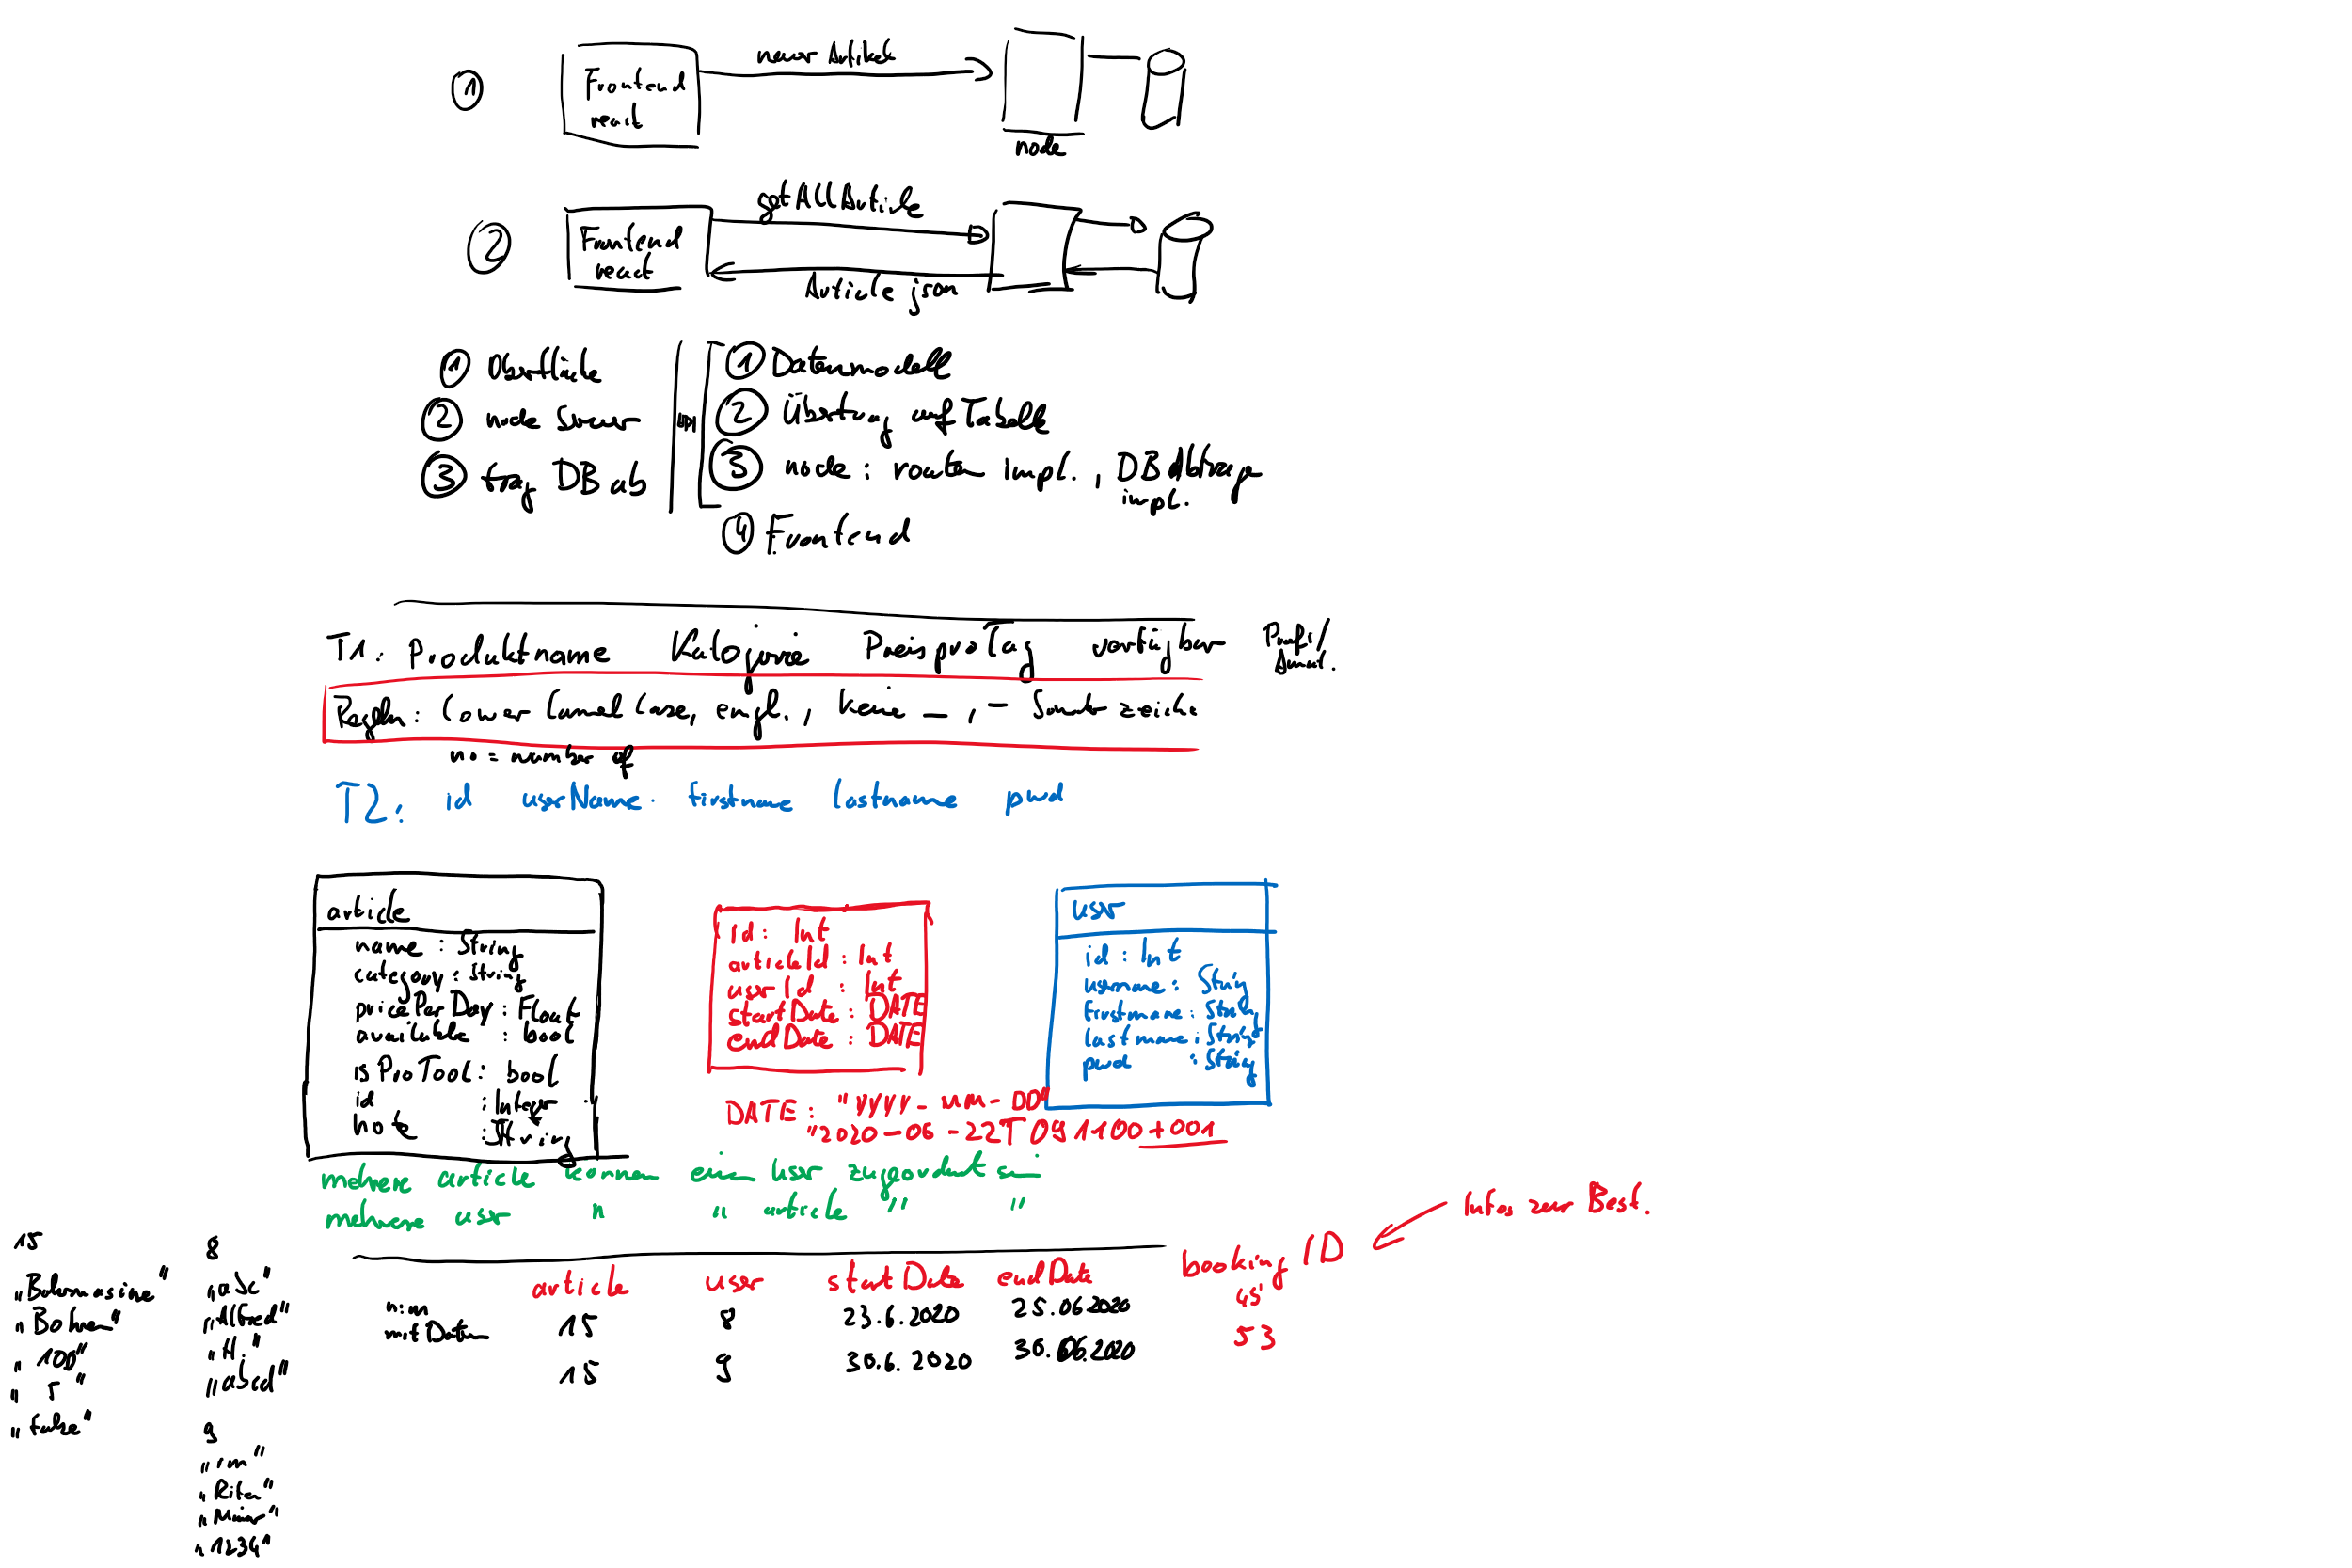 ① Frontend react
neuer Artikel
node
② Frontend react
getAllArticle
Article json
① Oberfläche
② node Server
③ frag DB ab
① Datenmodell
② Übertrag auf Tabelle
③ node: routen impl., DB Abfrage impl.
④ Frontend
T1: Produktname Kategorie PreisproTag verfügbar Profi/
Regeln: lower Camel Case, engl., keine _, - Sonderzeiche
no = number of
T2: id userName firstname lastname pwd
article
name : String
category : String
pricePerDay : Float
available : bool
isProTool : bool
id : Integer
note : String
id : Int
articleId : Int
userId : Int
startDate : DATE
endDate : DATE
user
id : Int
username : String
firstname : String
lastname : String
pwd : String
DATE: "YYYY-MM-DD"
"2020-06-22T091100+001
mehere article können ein user zugeordnet sein
mehrere user " " article " "
Infos zur Best.
article user startDate endDate bookingID
n:m mit Datum
15 8 23.6.2020 25.06.2020 45
15 9 30.6.2020 30.06.2020 53
15
"Bohrmasine"
"Bohren"
"100"
"false"
8
"Alfred"
"H."
"abcd"
9
"rm"
"Rita"
"1234"